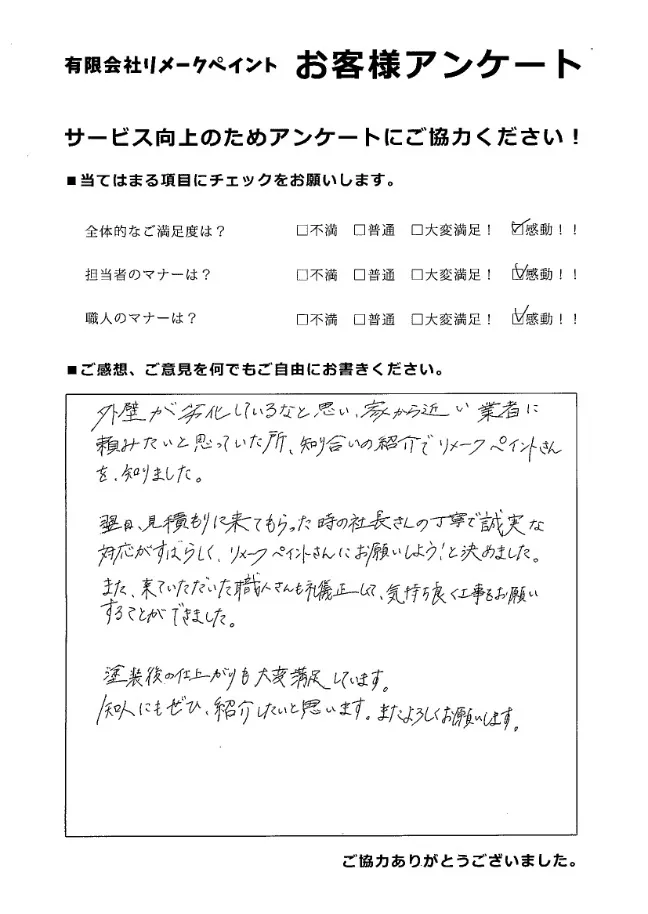 有限会社リメークペイント お客様アンケート
サービス向上のためアンケートにご協力ください！
■当てはまる項目にチェックをお願いします。
全体的なご満足度は？ □不満 □普通 □大変満足！ ☑感動！！
担当者のマナーは？ □不満 □普通 □大変満足！ ☑感動！！
職人のマナーは？ □不満 □普通 □大変満足！ ☑感動！！
■ご感想、ご意見を何でもご自由にお書きください。
外壁が劣化しているなと思い、家から近い業者に
頼みたいと思っていた所、知り合いの紹介でリメークペイントさん
を、知りました。
翌日、見積もりに来てもらった時の社長さんの丁寧で誠実な
対応がすばらしく、リメークペイントさんにお願いしよう！と決めました。
また、来ていただいた職人さんも礼儀正しくて、気持ち良く工事をお願い
することができました。
塗装後の仕上がりも大変満足しています。
知人にもぜひ、紹介したいと思います。またよろしくお願いします。
ご協力ありがとうございました。